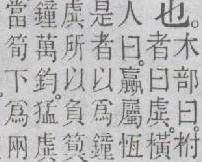 也。
木部曰。柎
者曰虡。橫
人曰。臝屬恆
是者以爲鐘
虡所以負
鐘萬鈞。猛虡
當筍下爲兩